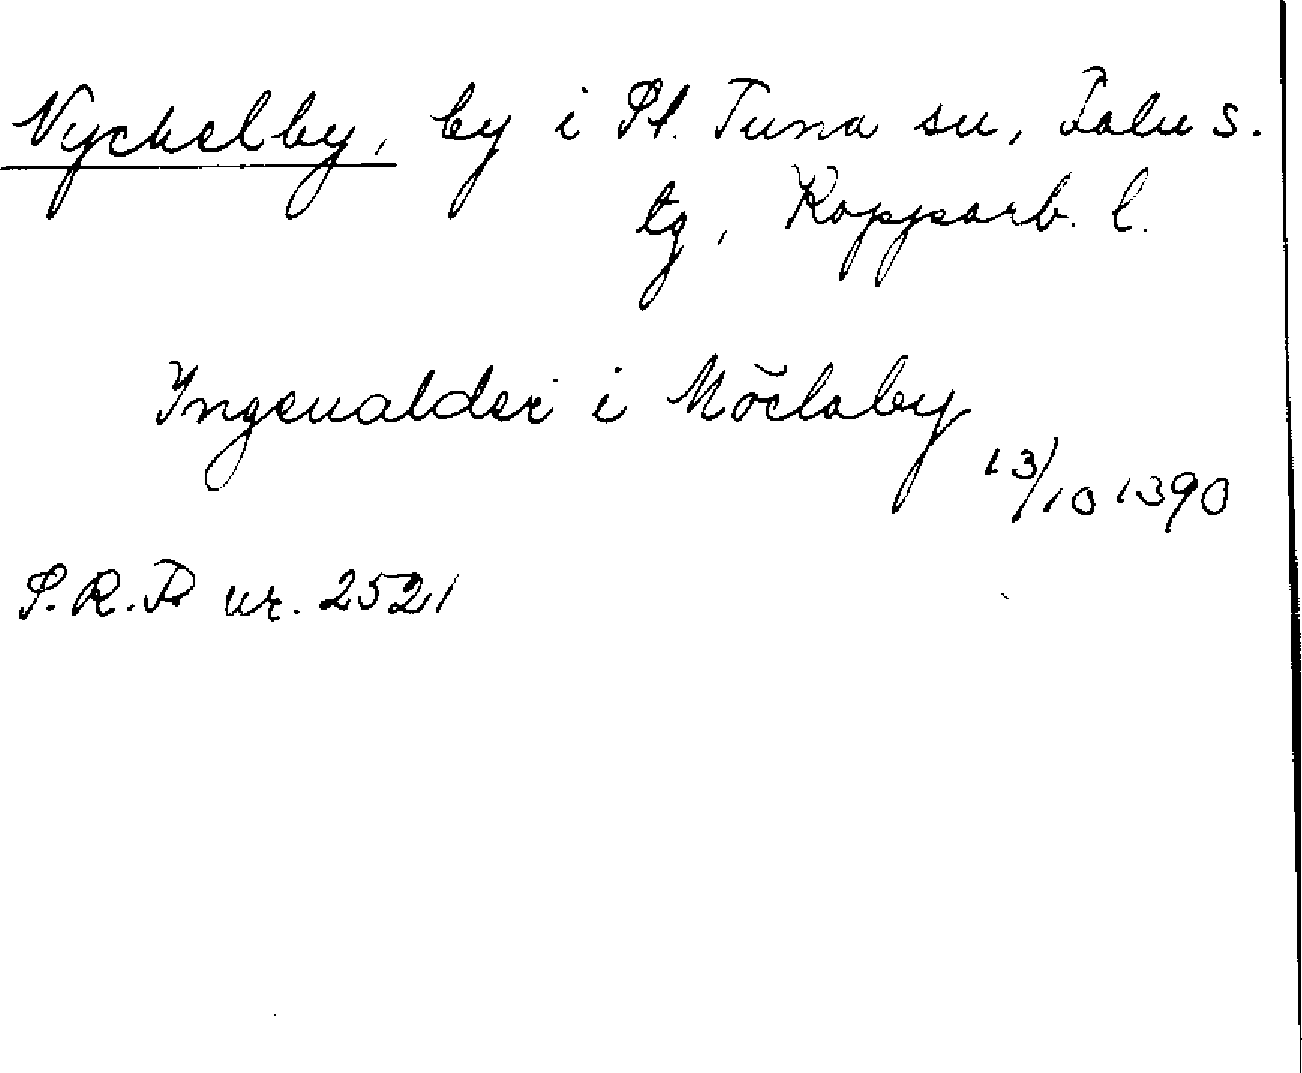 Nyckelby, by i St. Tuna sn, Falu s.
tg, Kopparb. l.
Ingeualder i Nöclaby
13/10 1390
S.R.P nr. 2521